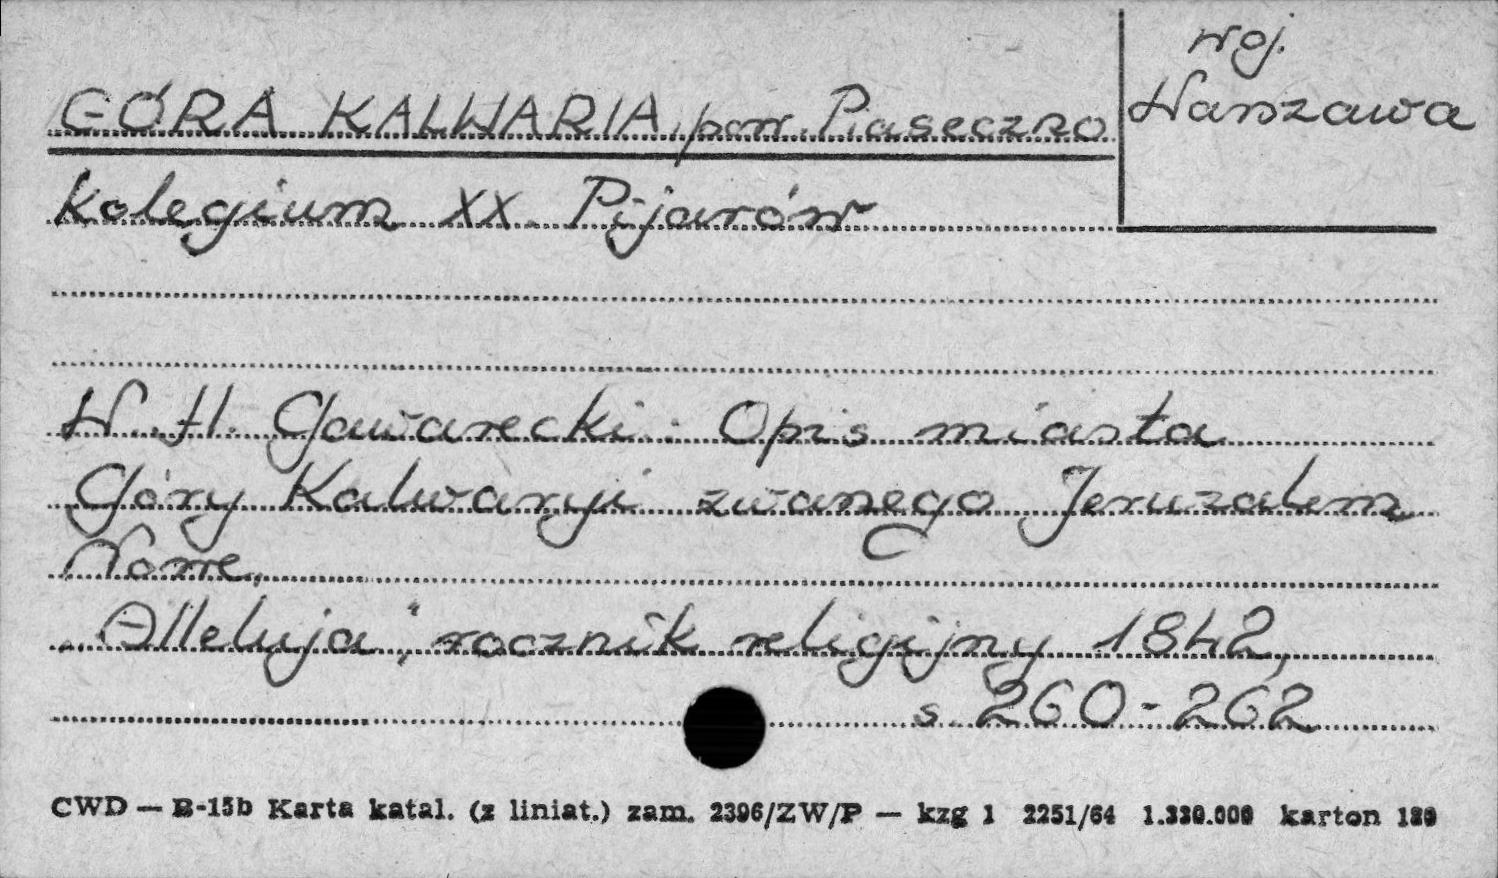 woj.
Warszawa
GÓRA KALWARIA, pow. Piaseczno
Kolegium XX. Pijarów
W. H. Gawarecki: Opis miasta
Góry Kalwaryi zwanego Jeruzalem
Nowe.
„Alleluja", rocznik religijny 1842,
s. 260-262
CWD — B-15b Karta katal. (z liniat.) zam. 2396/ZW/P — kzg 1 2251/64 1.330.000 karton 180